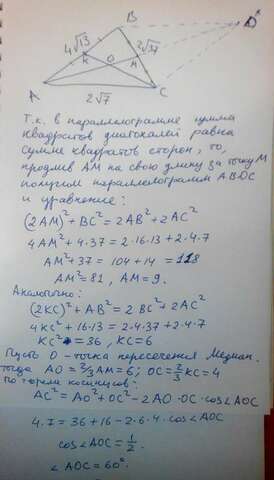 B
D
4√13
2√37
K
O
M
A
C
2√7
Т.к. в параллелограмме сумма
квадратов диагоналей равна
сумме квадратов сторон, то,
продлив AM на свою длину за точку M
получим параллелограмм ABDC
и уравнение:
(2AM)²+BC²=2AB²+2AC²
4AM²+4·37=2·16·13+2·4·7
AM²+37=104+14=118
AM²=81, AM=9.
Аналогично:
(2KC)²+AB²=2BC²+2AC²
4KC²+16·13=2·4·37+2·4·7
KC²=36, KC=6
Пусть O - точка пересечения медиан.
тогда AO=2/3AM=6; OC=2/3KC=4
по теореме косинусов:
AC²=AO²+OC²-2AO·OC·cos∠AOC
4·7=36+16-2·6·4·cos∠AOC
cos∠AOC=1/2.
∠AOC=60°.